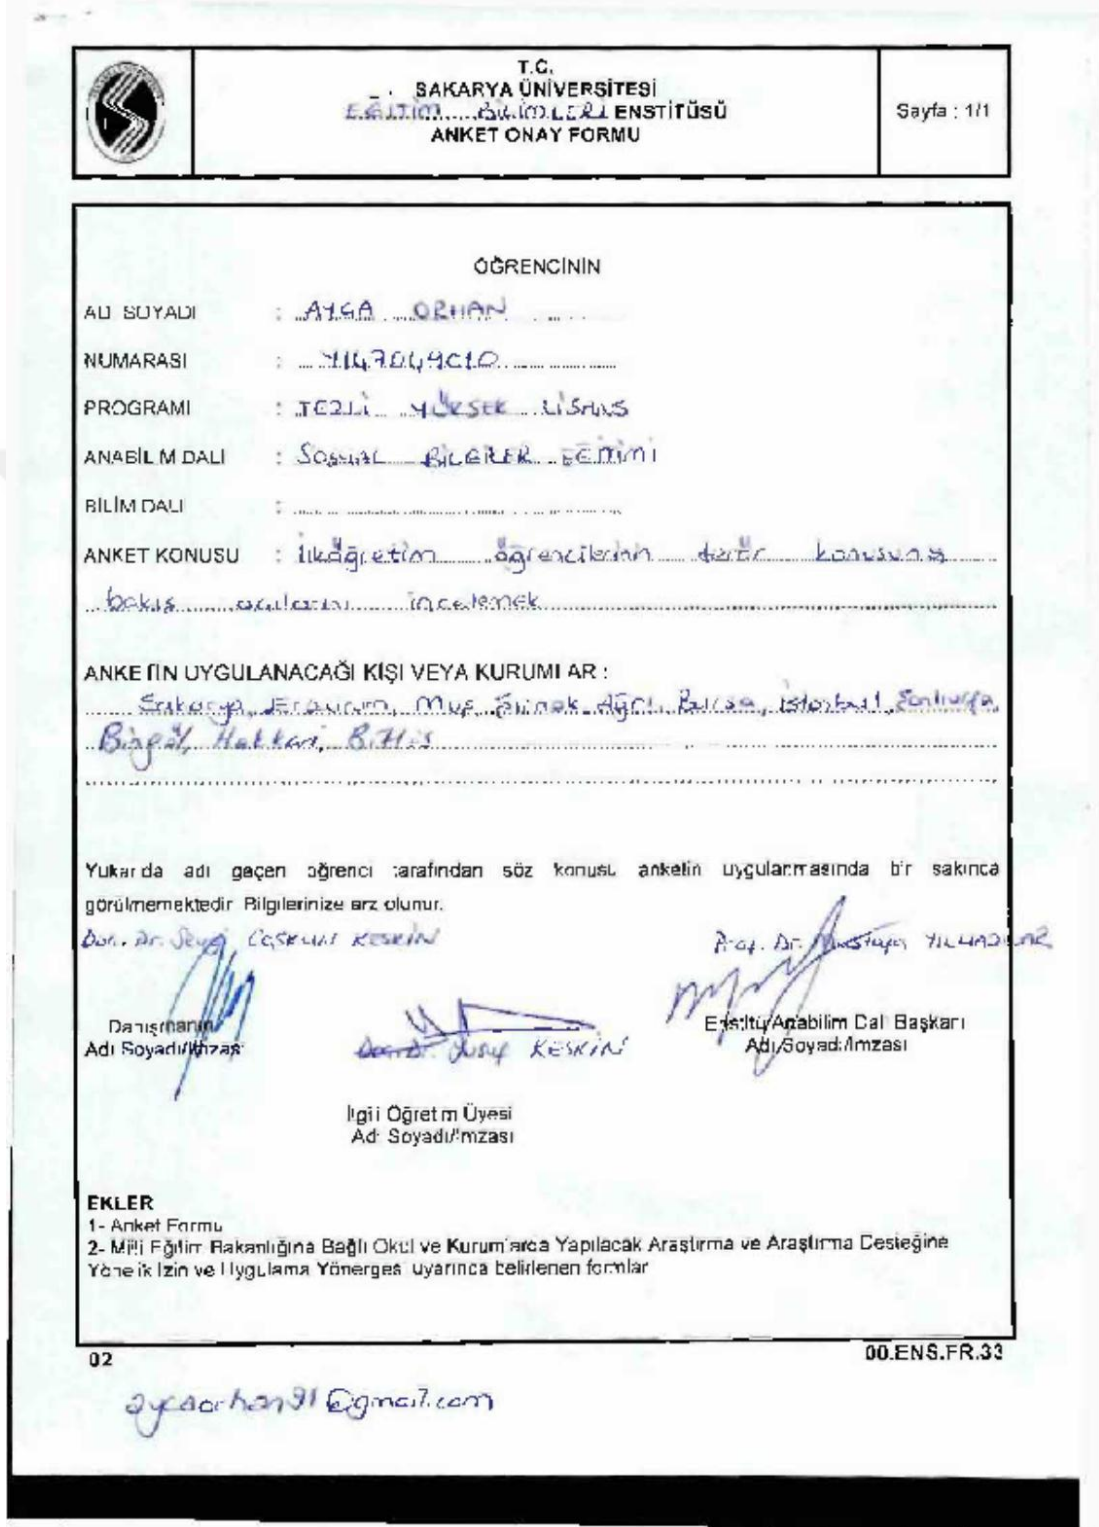 T.C.
SAKARYA ÜNİVERSİTESİ
EĞİTİM BİLİMLERİ ENSTİTÜSÜ
ANKET ONAY FORMU
Sayfa : 1/1
ÖĞRENCİNİN
ADI SOYADI : AYÇA ORHAN
NUMARASI :
PROGRAMI : TEZLİ YÜKSEK LİSANS
ANABİLİM DALI : SOSYAL BİLGİLER EĞİTİMİ
BİLİM DALI :
ANKET KONUSU : İlköğretim öğrencilerinin terör konusuna
bakış açılarını incelemek
ANKETİN UYGULANACAĞI KİŞİ VEYA KURUMLAR :
Sakarya, Erzurum, Muş, Şırnak, Ağrı, Bursa, İstanbul, Şanlıurfa,
Bingöl, Hakkari, Bitlis
Yukarıda adı geçen öğrenci tarafından söz konusu anketin uygulanmasında bir sakınca
görülmemektedir. Bilgilerinize arz olunur.
Doç. Dr. Sevgi COŞKUN KESKİN
Prof. Dr. Mustafa YILMAZLAR
Danışmanın
Adı Soyadı/İmzası
Doç. Dr. Yusuf KESKİN
Enstitü/Anabilim Dalı Başkanı
Adı/Soyadı/İmzası
İlgili Öğretim Üyesi
Adı Soyadı/İmzası
EKLER
1- Anket Formu
2- Milli Eğitim Bakanlığına Bağlı Okul ve Kurumlarda Yapılacak Araştırma ve Araştırma Desteğine
Yönelik İzin ve Uygulama Yönergesi uyarınca belirlenen formlar
02
00.ENS.FR.33
aycaorhan91@gmail.com